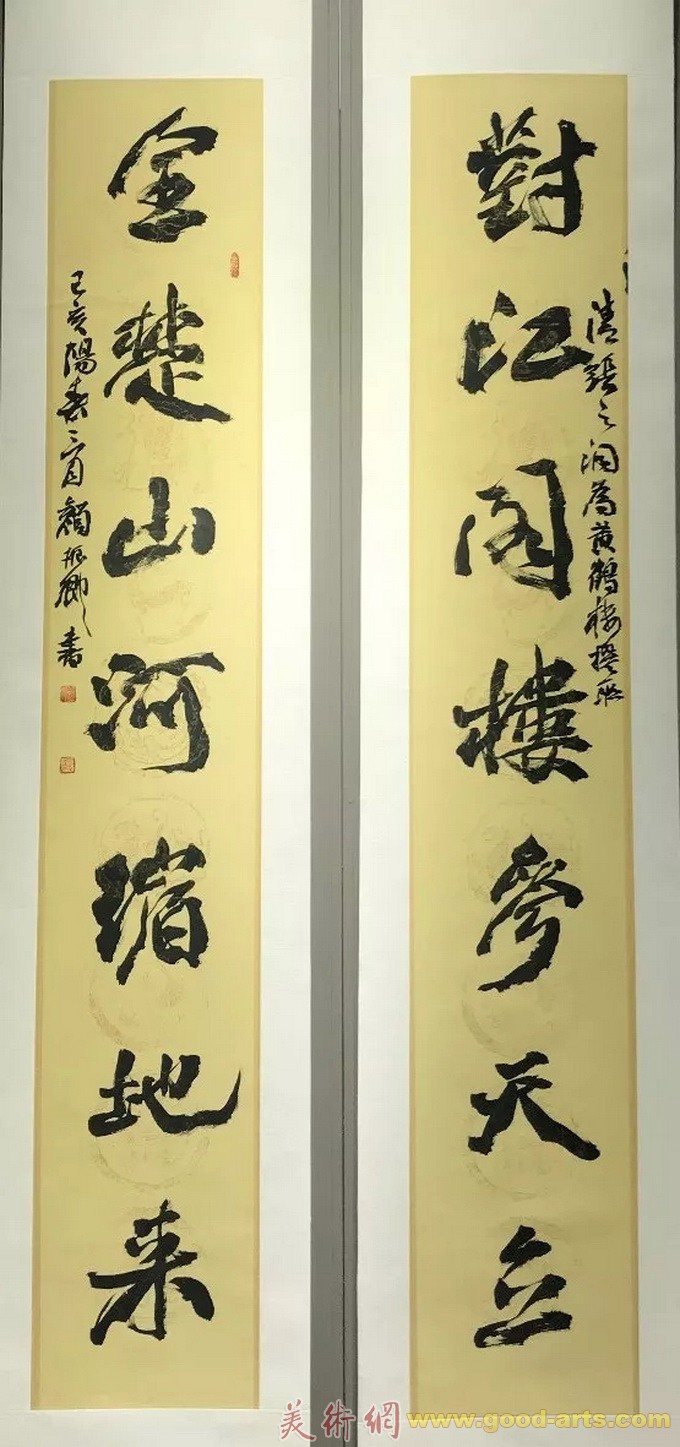 清張之洞為黄鶴楼撰联
對江阁樓參天立
全楚山河縮地来
己亥陽春三月顏振卿書
美術網 www.good-arts.com